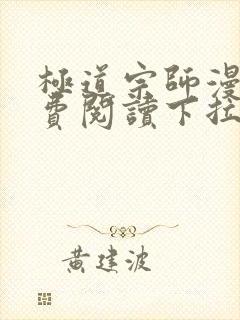 極道宗師漫
費閱讀下拉
黃建波